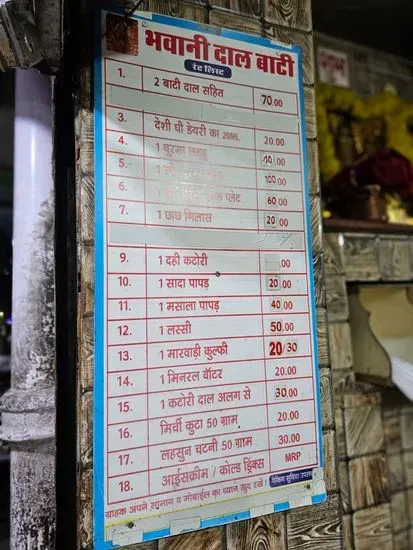 भवानी दाल बाटी
रेट लिस्ट
1. 2 बाटी दाल सहित 70.00
3. देशी घी डेयरी का 20ML 20.00
4. 1 चूरमा लड्डू 40.00
5. 1 100.00
6. प्लेट 60.00
7. 1 छाछ गिलास 20.00
9. 1 दही कटोरी .00
10. 1 सादा पापड़ 20.00
11. 1 मसाला पापड़ 40.00
12. 1 लस्सी 50.00
13. 1 मारवाड़ी कुल्फी 20/30
14. 1 मिनरल वॉटर 20.00
15. 1 कटोरी दाल अलग से 30.00
16. मिर्ची कुटा 50 ग्राम 20.00
17. लहसुन चटनी 50 ग्राम 30.00
18. आईसक्रीम / कोल्ड ड्रिंक्स MRP
पैकिंग सुविधा
ग्राहक अपने सामान व मोबाईल का ध्यान खुद रखें